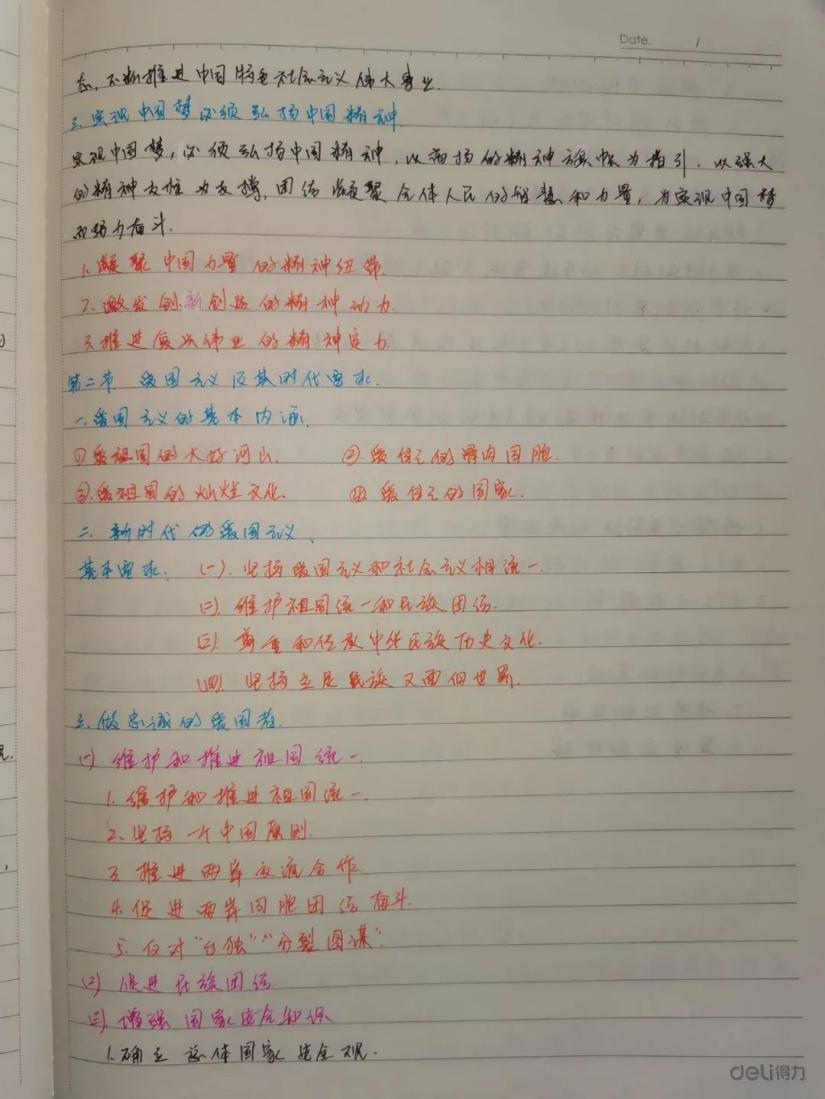 Date. /
态，不断推进中国特色社会主义伟大事业.
三.实现中国梦必须弘扬中国精神
实现中国梦，必须弘扬中国精神，以高扬的精神旗帜为指引，以强大
的精神支柱为支撑，团结凝聚全体人民的智慧和力量，为实现中国梦
而努力奋斗.
1.凝聚中国力量的精神纽带.
2.激发创新创造的精神动力.
3.推进复兴伟业的精神定力.
第二节 爱国主义及其时代要求.
一.爱国主义的基本内涵.
①爱祖国的大好河山. ②.爱自己的骨肉同胞.
③.爱祖国的灿烂文化. ④.爱自己的国家.
二.新时代的爱国主义.
基本要求. (一).坚持爱国主义和社会主义相统一.
(二).维护祖国统一和民族团结.
(三).尊重和传承中华民族历史文化.
(四).坚持立足民族又面向世界.
三.做忠诚的爱国者.
(一)维护和推进祖国统一.
1.维护和推进祖国统一.
2.坚持一个中国原则.
3.推进两岸交流合作.
4.促进两岸同胞团结奋斗.
5.反对"台独""分裂图谋".
(二)促进民族团结.
(三)增强国家安全知识
1.确立总体国家安全观.
deli得力